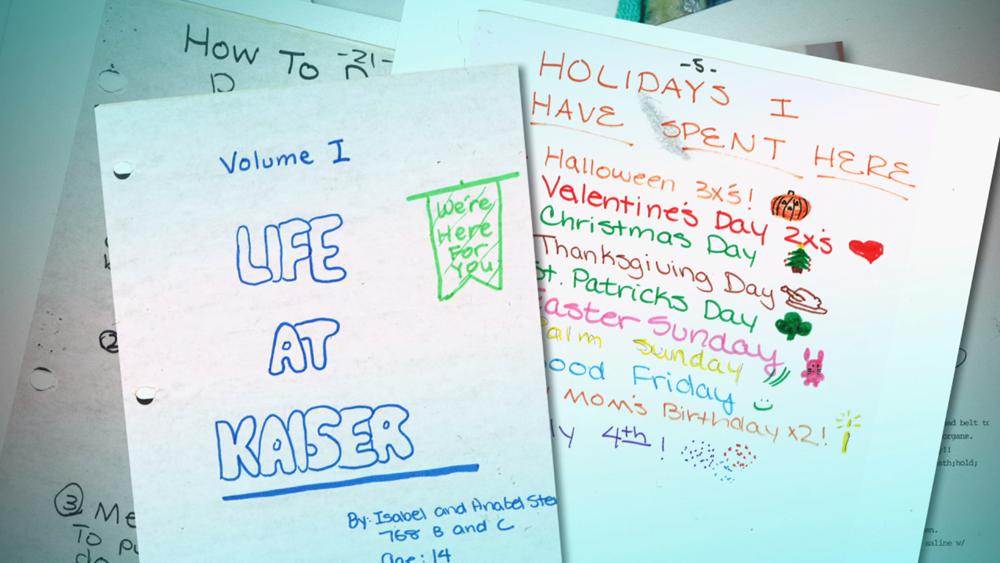 How To
-21-
D
Volume I
LIFE
AT
KAISER
We're
Here
For
You
By: Isabel and Anabel
768 B and C
Age: 14
-5-
HOLIDAYS I
HAVE SPENT HERE
Halloween 3x's!
Valentine's Day 2x's
Christmas Day
Thanksgiving Day
St. Patricks Day
Easter Sunday
Palm Sunday
Good Friday
Mom's Birthday x2!
4th!
2
3
Me
To
do
belt to
organs.
hold;
saline w/